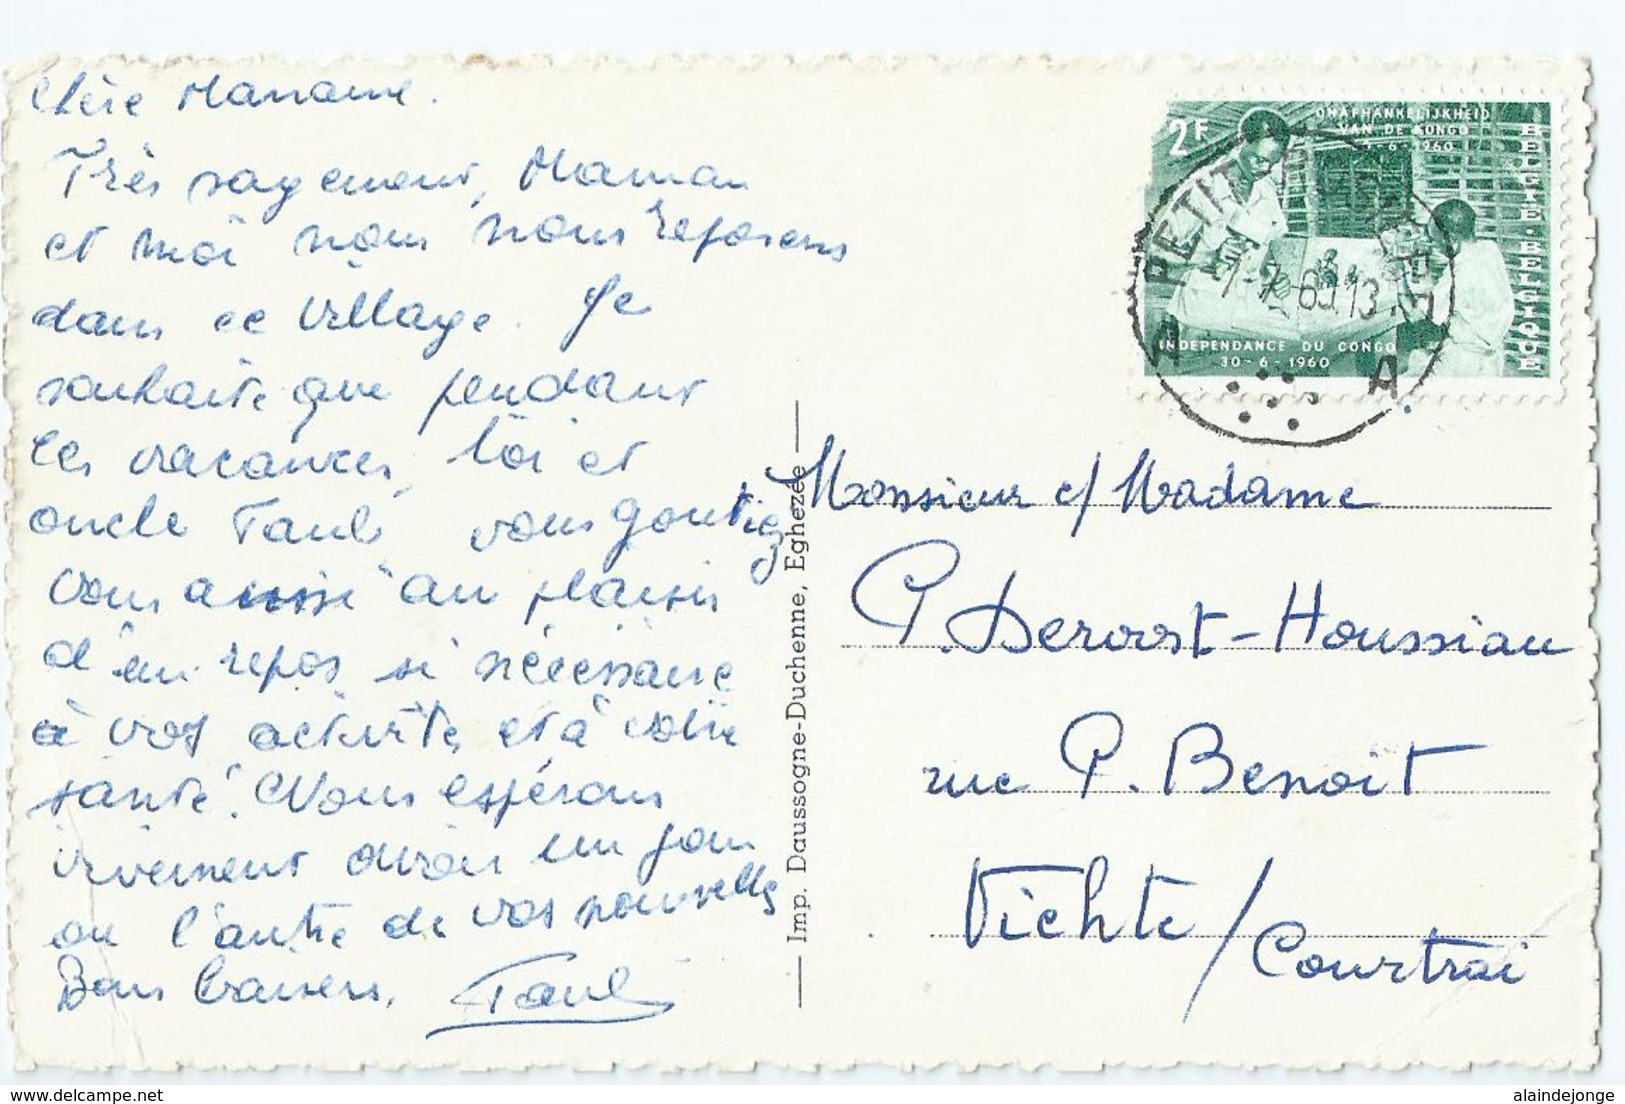 Chère Marraine.
Très sagement, Maman
et moi nous nous reposons
dans ce village. Je
souhaite que pendant
les vacances, toi et
oncle Paul, vous goutiez
vous aussi au plaisir
d'un repos si nécessaire
à vos activités et à votre
santé. Nous espérons
vivement avoir un jour
ou l'autre de vos nouvelles
Bons baisers, Paul
Imp. Daussogne-Duchenne, Eghezée
2F
ONAFHANKELIJKHEID
VAN DE KONGO
30-6-1960
BELGIË-BELGIQUE
INDEPENDANCE DU CONGO
30-6-1960
PETIT
13
A
Monsieur et Madame
P. Deroost-Houssiau
rue P. Benoit
Vichte / Courtrai
alaindejonge